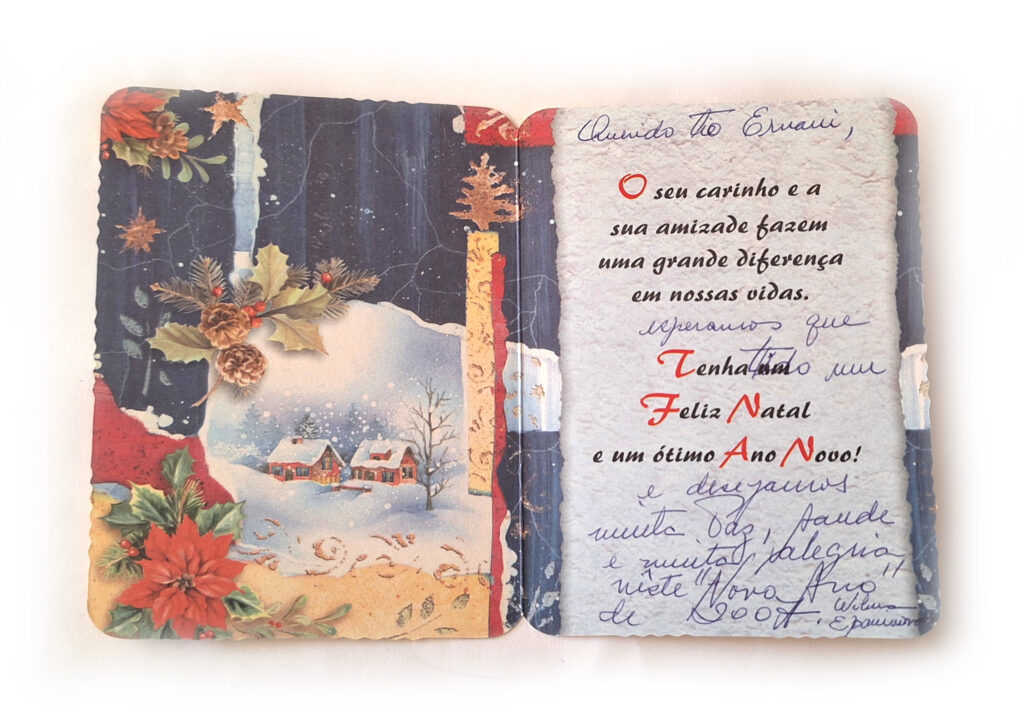 Querido tio Ernani,
O seu carinho e a
sua amizade fazem
uma grande diferença
em nossas vidas.
esperamos que
Tenha um tido um
Feliz Natal
e um ótimo Ano Novo!
e desejamos
muita Paz, saude
e muita alegria
neste "Novo Ano"
de 2007.
Wilma